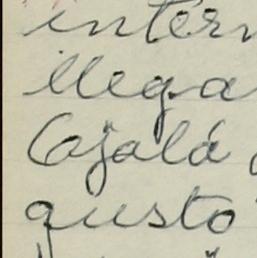 intern
illega
Cojalá
gusto